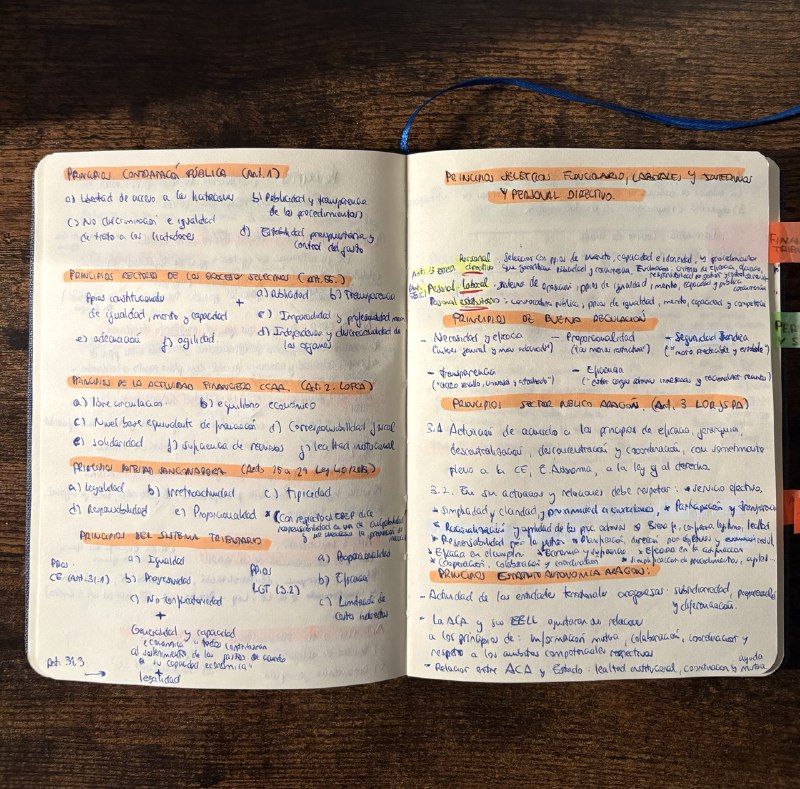 PRINCIPIOS CONTRATACIÓN PÚBLICA (Art. 1)
a) Libertad de acceso a las licitaciones b) Publicidad y transparencia
de los procedimientos)
c) No discriminación e igualdad
de trato a los licitadores d) Estabilidad presupuestaria y
control del gasto
PRINCIPIOS RECTORES DE LOS PROCESOS SELECTIVOS (Art. 55.)
Ppios constitucionales + a) Publicidad b) Transparencia
de igualdad, mérito y capacidad c) Imparcialidad y profesionalidad
d) Independencia y discrecionalidad de
los órganos
e) adecuación f) agilidad.
PRINCIPIOS DE LA ACTIVIDAD FINANCIERA CCAA. (Art. 2. LOFCA)
a) libre circulación b) equilibrio económico
c) Nivel base equivalente de financiación d) Corresponsabilidad fiscal
e) solidaridad f) suficiencia de recursos g) lealtad institucional
PRINCIPIOS POTESTAD SANCIONADORA (Arts. 25 a 29 Ley 40/2015)
a) Legalidad b) Irretroactividad c) Tipicidad
d) Responsabilidad e) Proporcionalidad * (Con respecto al EBEP dice
responsabilidad en vez de culpabilidad
y no menciona la presunción
PRINCIPIOS DEL SISTEMA TRIBUTARIO
PPIOS
CE (Art. 31.1)
a) Igualdad
b) Progresividad
c) No confiscatoriedad
+
Generalidad y capacidad
económica "todos contribuirán
al sostenimiento de los gastos de acuerdo
a su capacidad económica"
+
legalidad
PPIOS
LGT (3.2)
a) Proporcionalidad
b) Eficacia
c) Limitación de
costes indirectos
Art. 31.3 →
PRINCIPIOS SELECCIÓN FUNCIONARIO, LABORALES Y INTERINOS
Y PERSONAL DIRECTIVO.
Art. 13 EBEP Personal directivo: Selección con ppios de mérito, capacidad e idoneidad, y procedimientos
que garanticen publicidad y concurrencia. Evaluación: criterios de eficacia, eficiencia,
responsabilidad por gestión y control de resultados
Personal laboral: sistema de oposición: ppios de igualdad, mérito, capacidad y pública
concurrencia
Personal estatutario: convocatoria pública, ppios de igualdad, mérito, capacidad y competencia
PRINCIPIOS DE BUENA REGULACIÓN
- Necesidad y eficacia - Proporcionalidad - Seguridad Jurídica
("interés general y más adecuado") ("las menos restrictivas") ("marco predecible y estable")
- transparencia - eficiencia
("acceso sencillo, universal y actualizado") ("evitar cargas admin. innecesarias y racionalizar recursos")
PRINCIPIOS SECTOR PÚBLICO ARAGÓN (Art. 3 LORJSPA)
3.1 Actuación de acuerdo a los principios de eficacia, jerarquía,
descentralización, desconcentración y coordinación, con sometimiento
pleno a la CE, E. Autonomía, a la ley y al derecho.
3.2. En sus actuaciones y relaciones debe respetar: * servicio efectivo.
* simplicidad y claridad y proximidad a ciudadanos, * Participación y transparencia
* Racionalización y agilidad de los proc. admvos * Buena fe, confianza legítima, lealtad
* Responsabilidad por la gestión * Planificación, dirección por objetivos y
* Eficacia en el cumplim. * Economía y suficiencia * Eficiencia en la asignación
* Cooperación, colaboración y coordinación * simplificación de procedimientos,
PRINCIPIOS ESTATUTO AUTONOMÍA ARAGÓN:
- Actividad de las entidades territoriales aragonesas: subsidiariedad, proporcionalidad
y diferenciación.
- La ACA y sus EELL ajustarán sus relaciones
a los principios de: información mutua, colaboración, coordinación y
respeto a los ámbitos competenciales respectivos
- Relación entre ACA y Estado: lealtad institucional, coordinación y ayuda mutua
FINAN
TRIBU
PER
Y S